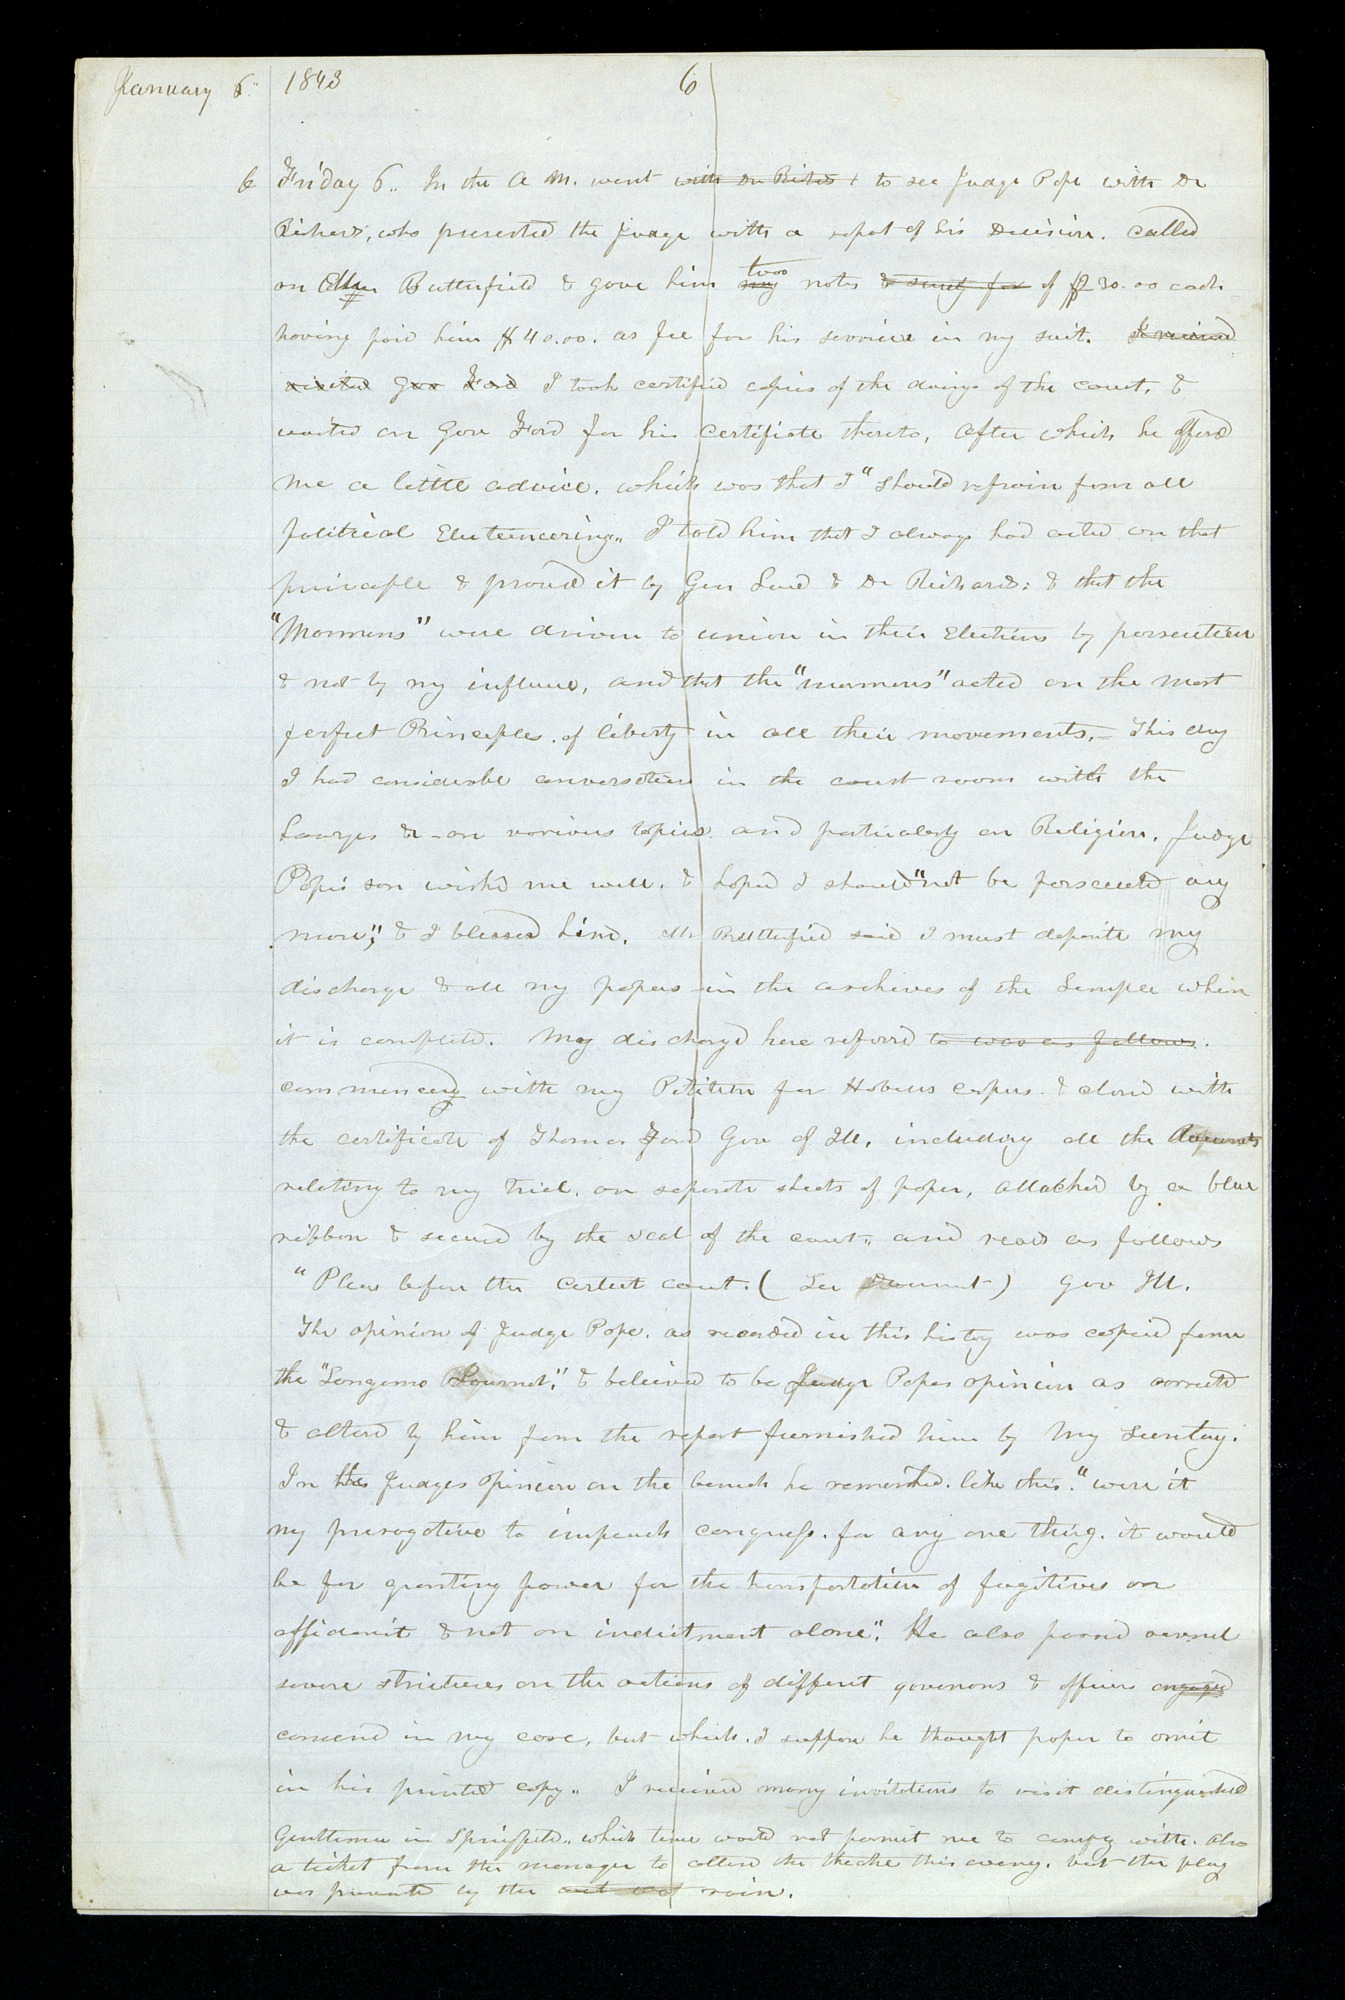 January 6" 1843 6
6 Friday 6.. In the A M. went with Dr Richds + to see Judge Pope with Dr
Richards, who presented the judge with a repot of his Decision. called
on Mr Butterfield & gave him my two notes & surety for of $230.00 each
having paid him $40.00. as fee for his service in my suit. I received
visited Gov Ford I took certified copies of the doings of the court, &
waited on Gov Ford for his certificate thereto, after which he offered
me a little advice. which was that I "should refrain from all
political Electioneering.. I told him that I always had acted on that
principle & proved it by Gen Law & Dr Richards; & that the
"Mormons" were driven to union in their Elections by persecution
& not by my influence, and that the "mormons" acted on the most
perfect Principles. of liberty in all their movements,– This day
I had considerable conversation in the court room with the
Lawyes &c – on various topics. and particularly on Religion. Judge
Pope's son wishd me well. & hoped I should "not be persecuted any
more", & I blessed him. Mr Butterfield said I must deposite my
discharge & all my papers in the archives of the Temple when
it is completed. My discharge here referrd to was as follows.
commenceng with my Petition for Habeus corpus & closed with
the certificate of Thomas Ford Gov of Ill, including all the documents
relating to my trial, on seperate sheets of paper, attached by a blue
ribbon & secured by the seal of the court.. and reads as follows
"Pleas before the Circuit court. ( See Document ) Gov Ill.
The opinion of Judge Pope. as recorded in this history was copied from
the "Sangamo Journal," & believed to be Judge Popes opinion as corrected
& altered by him from the report furnished him by My secretary.
In the Judges opinion on the bench he remarked. like this. "were it
my prerogative to impeach congress. for any one thing. it would
be for granting power for the transportation of fugitives on
affidavit & not on indictment alone". He also passed several
severe strictures on the actions of different governors & officers engaged
concernd in my case, but which. I suppose he thought proper to omit
in his printed copy.. I received many invitations to visit distinguished
Gentlemen in Springfield.. which time would not permit me to comply with. also
a ticket from the manager to attend the theatre this eveng. but the play
was prevented by the rain.